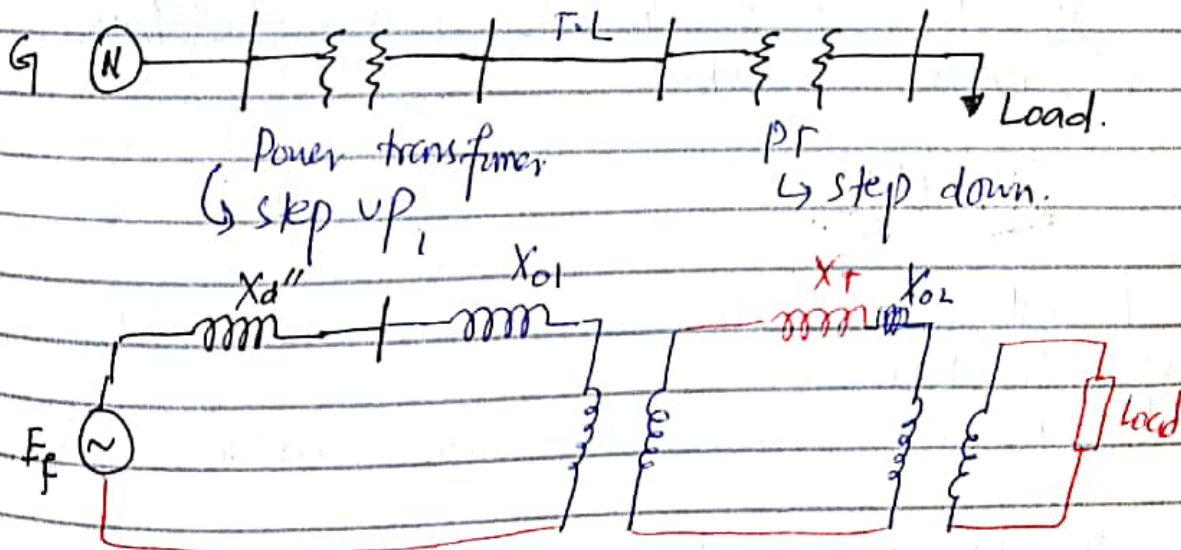 G N T.L Load.
Power transfumer PT
↳ step up, ↳ step down.
Xd" X01 XT X02
Ef ~ Load